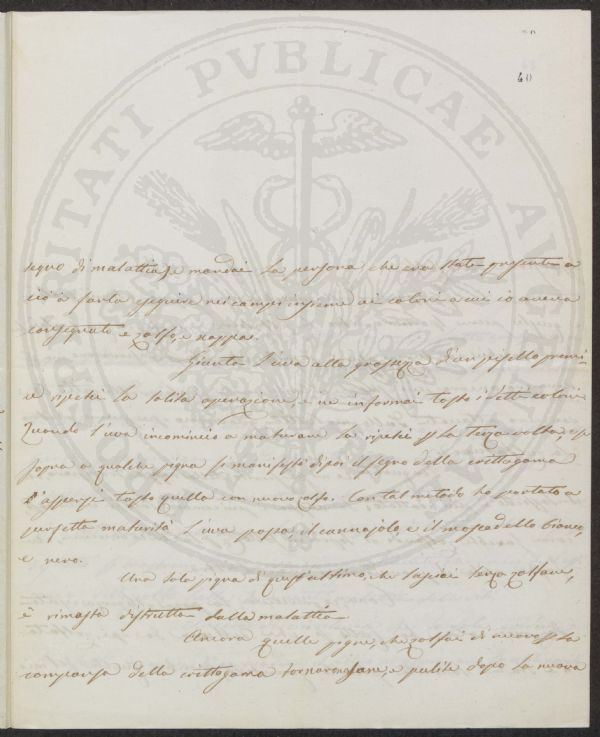 40
segno di malattia, e mandai la persona che era stata presente a
ciò a farla eseguire nei campi insieme ai coloni a cui io aveva
consegnato e zolfo, e nappa.
Giunta l'uva alla grossezza d'un pisello premi-
si ripetei la solita operazione, e ne informai tosto i detti coloni
Quando l'uva incominciò a maturare la ripetei per la terza volta, e se
sopra a qualche pigna si manifestò di poi il segno della crittogama
l'aspersi tosto quella con nuovo zolfo. Con tal metodo ho portato a
perfetta maturità l'uva passa, il cannajolo, e il moscadello bianco,
e nero.
Una sola pigna di quest'ultimo, che lasciai senza zolfare,
è rimasta distrutta dalla malattia.
Ancora quelle pigne, che zolfai di nuovo per la
comparsa della crittogama tornarono sane, e pulite dopo la nuova
PROSPERITATI PVBLICAE AVGENDAE